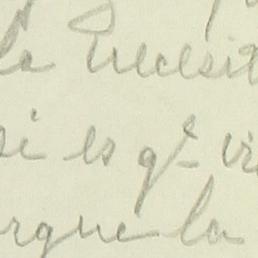 la necesit
si es qᵉ vi
rque la